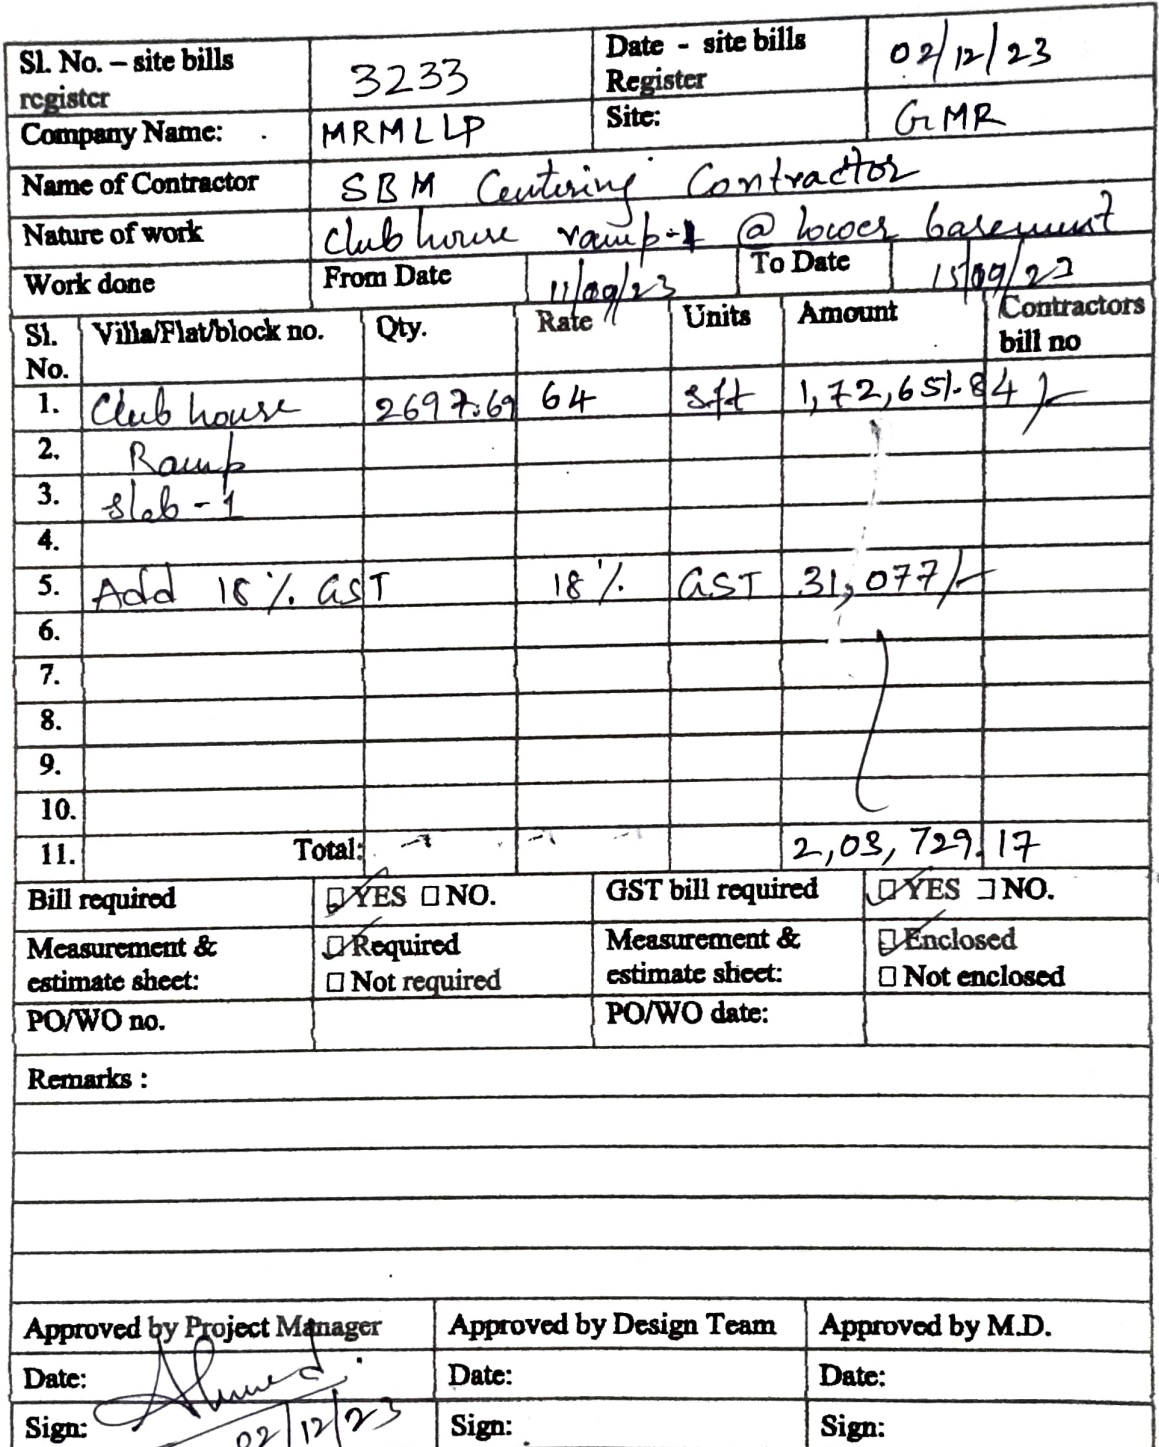 Sl. No. – site bills register 3233 Date - site bills Register 02/12/23
Company Name: MRMLLP Site: GMR
Name of Contractor SBM Centering Contractor
Nature of work Club house ramp-1 @ lower basement
Work done From Date 11/09/23 To Date 15/09/23
Sl. No. Villa/Flat/block no. Qty. Rate Units Amount Contractors bill no
1. Club house 2697.69 64 sft 1,72,651.84/-
2. Ramp
3. slab - 1
4.
5. Add 18 % GST 18 % GST 31,077/-
6.
7.
8.
9.
10.
11. Total: 2,03,729.17
Bill required YES NO. GST bill required YES NO.
Measurement & estimate sheet: Required Not required Measurement & estimate sheet: Enclosed Not enclosed
PO/WO no. PO/WO date:
Remarks :
Approved by Project Manager Approved by Design Team Approved by M.D.
Date: Date: Date:
Sign: Ahmed 02/12/23 Sign: Sign: